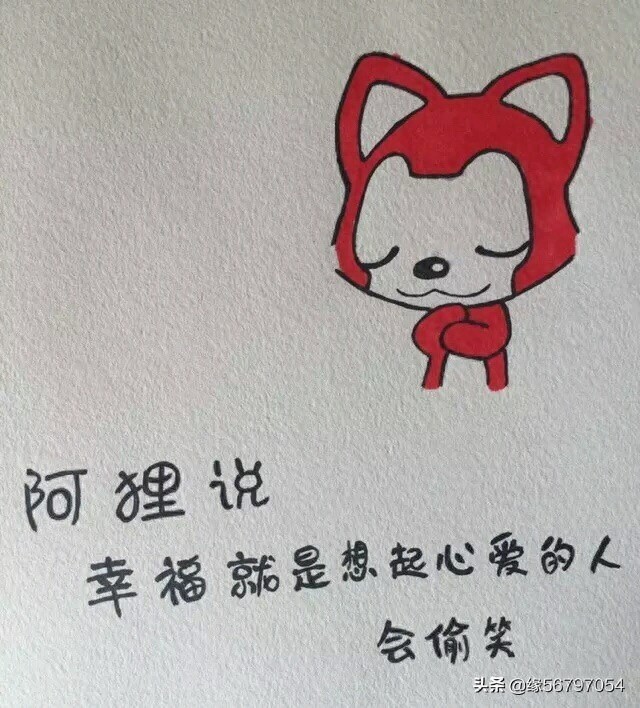 阿狸说
幸福就是想起心爱的人
会偷笑
头条 @缘56797054